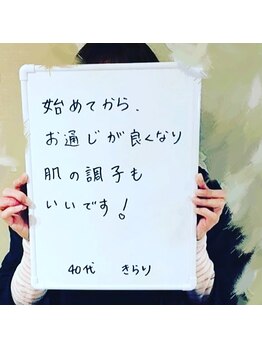 始めてから、
お通じが良くなり
肌の調子も
いいです！
40代 きらり